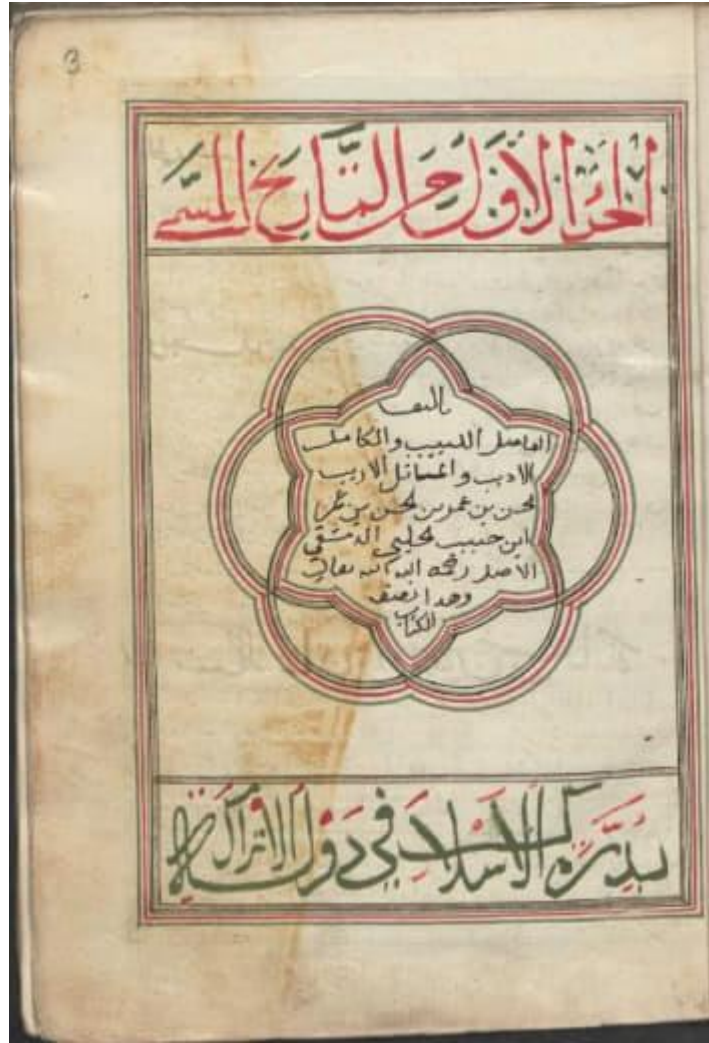 3
الجزء الأول من التاريخ المسمى
تاليف
الفاضل اللبيب والكامل
الاديب و الاريب
لحسن بن عمر بن لحسن بن عمر
ابن حبيب لحلبي الدمشقي
الاصل رحمه الله تعالى
وهدا نصف
الكتاب
بدرة الأسلاك في دولة الاتراك